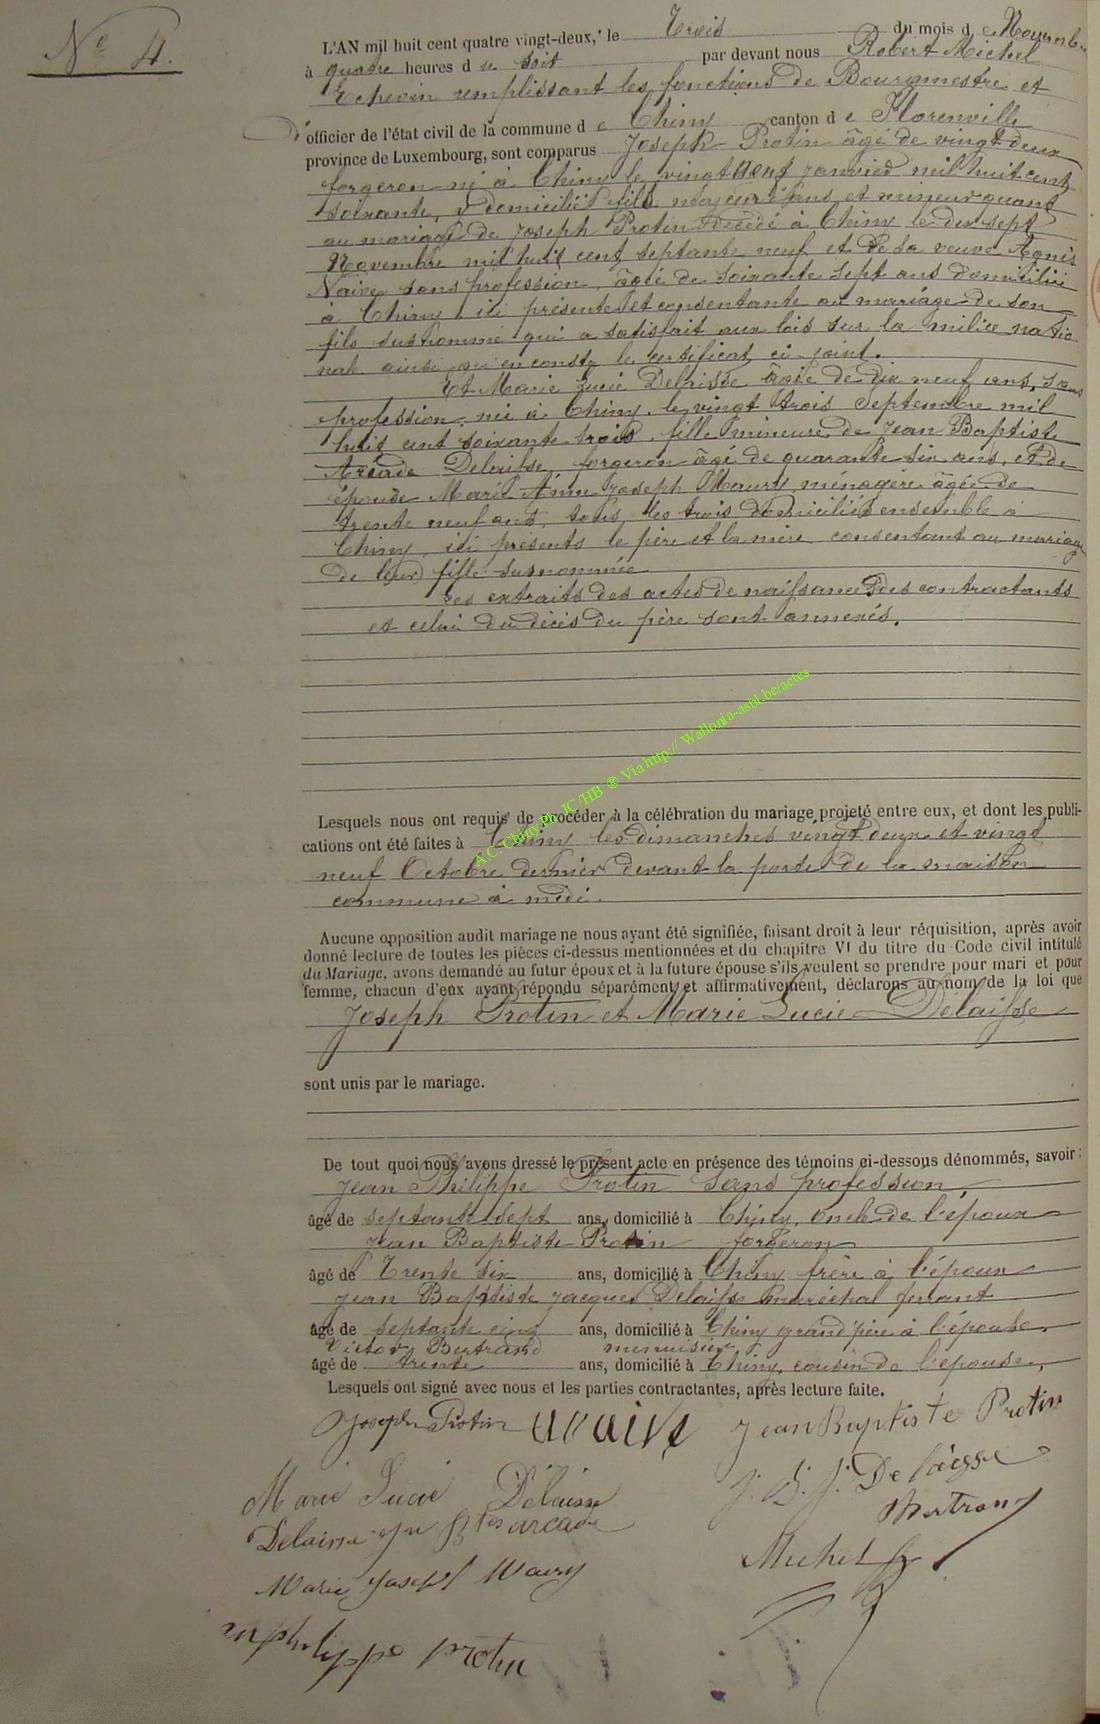 No 4.
L'AN mil huit cent quatre vingt-deux, le Trois du mois de Novembre
à quatre heures du soir par devant nous Robert Michel
Echevin remplissant les fonctions de Bourgmestre et
d'officier de l'état civil de la commune de Chiny canton de Florenville
province de Luxembourg, sont comparus Joseph Protin âgé de vingt deux
forgeron né à Chiny le vingt neuf janvier mil huit cent
soixante, y domicilié fils majeur d'ans et mineur quant
au mariage de Joseph Protin décédé à Chiny le dix sept
Novembre mil huit cent septante neuf et de sa veuve Agnès
Naive sans profession, âgée de soixante sept ans domiciliée
à Chiny, ici présente et consentante au mariage de son
fils susnommé qui a satisfait aux lois sur la milice natio
nale ainsi qu'en conste le certificat ci joint.
Et Marie Lucie Delaisse âgée de dix neuf ans, sans
profession, née à Chiny, le vingt trois Septembre mil
huit cent soixante trois, fille mineure de Jean Baptiste
Arcade Delaisse, forgeron âgé de quarante six ans, et de
épouse Marie Anne Joseph Maury ménagère âgée de
trente neuf ans, tous les trois domiciliés ensemble à
Chiny, ici présents le père et la mère consentant au mariage
de leur fille susnommée
Les extraits des actes de naissance des contractants
et celui du décès du père sont annexés.
A.C. Chiny Ph. JC/HB ® Via http:// Wallonia-asbl.be/actes
Lesquels nous ont requis de procéder à la célébration du mariage projeté entre eux, et dont les publi-
cations ont été faites à Chiny les dimanches vingt deux et vingt
neuf Octobre dernier devant la porte de la maison
commune à midi.
Aucune opposition audit mariage ne nous ayant été signifiée, faisant droit à leur réquisition, après avoir
donné lecture de toutes les pièces ci-dessus mentionnées et du chapitre VI du titre du Code civil intitulé
du Mariage, avons demandé au futur époux et à la future épouse s'ils veulent se prendre pour mari et pour
femme, chacun d'eux ayant répondu séparément et affirmativement, déclarons au nom de la loi que
Joseph Protin et Marie Lucie Delaisse
sont unis par le mariage.
De tout quoi nous avons dressé le présent acte en présence des témoins ci-dessous dénommés, savoir:
Jean Philippe Protin sans profession,
âgé de septante sept ans, domicilié à Chiny, oncle de l'époux
Jean Baptiste Protin forgeron
âgé de Trente six ans, domicilié à Chiny frère à l'époux
Jean Baptiste Jacques Delaisse maréchal ferrant
âgé de septante cinq ans, domicilié à Chiny grand'père à l'épouse,
Victor Bertrand menuisier
âgé de trente ans, domicilié à Chiny, cousin de l'épouse,
Lesquels ont signé avec nous et les parties contractantes, après lecture faite.
Joseph Protin Jean Baptiste Protin
Marie Lucie Delaisse J. B. J. Delaisse
Delaisse Jn Bte arcade Bertrand
Marie Joseph Maury Michel
philippe protin